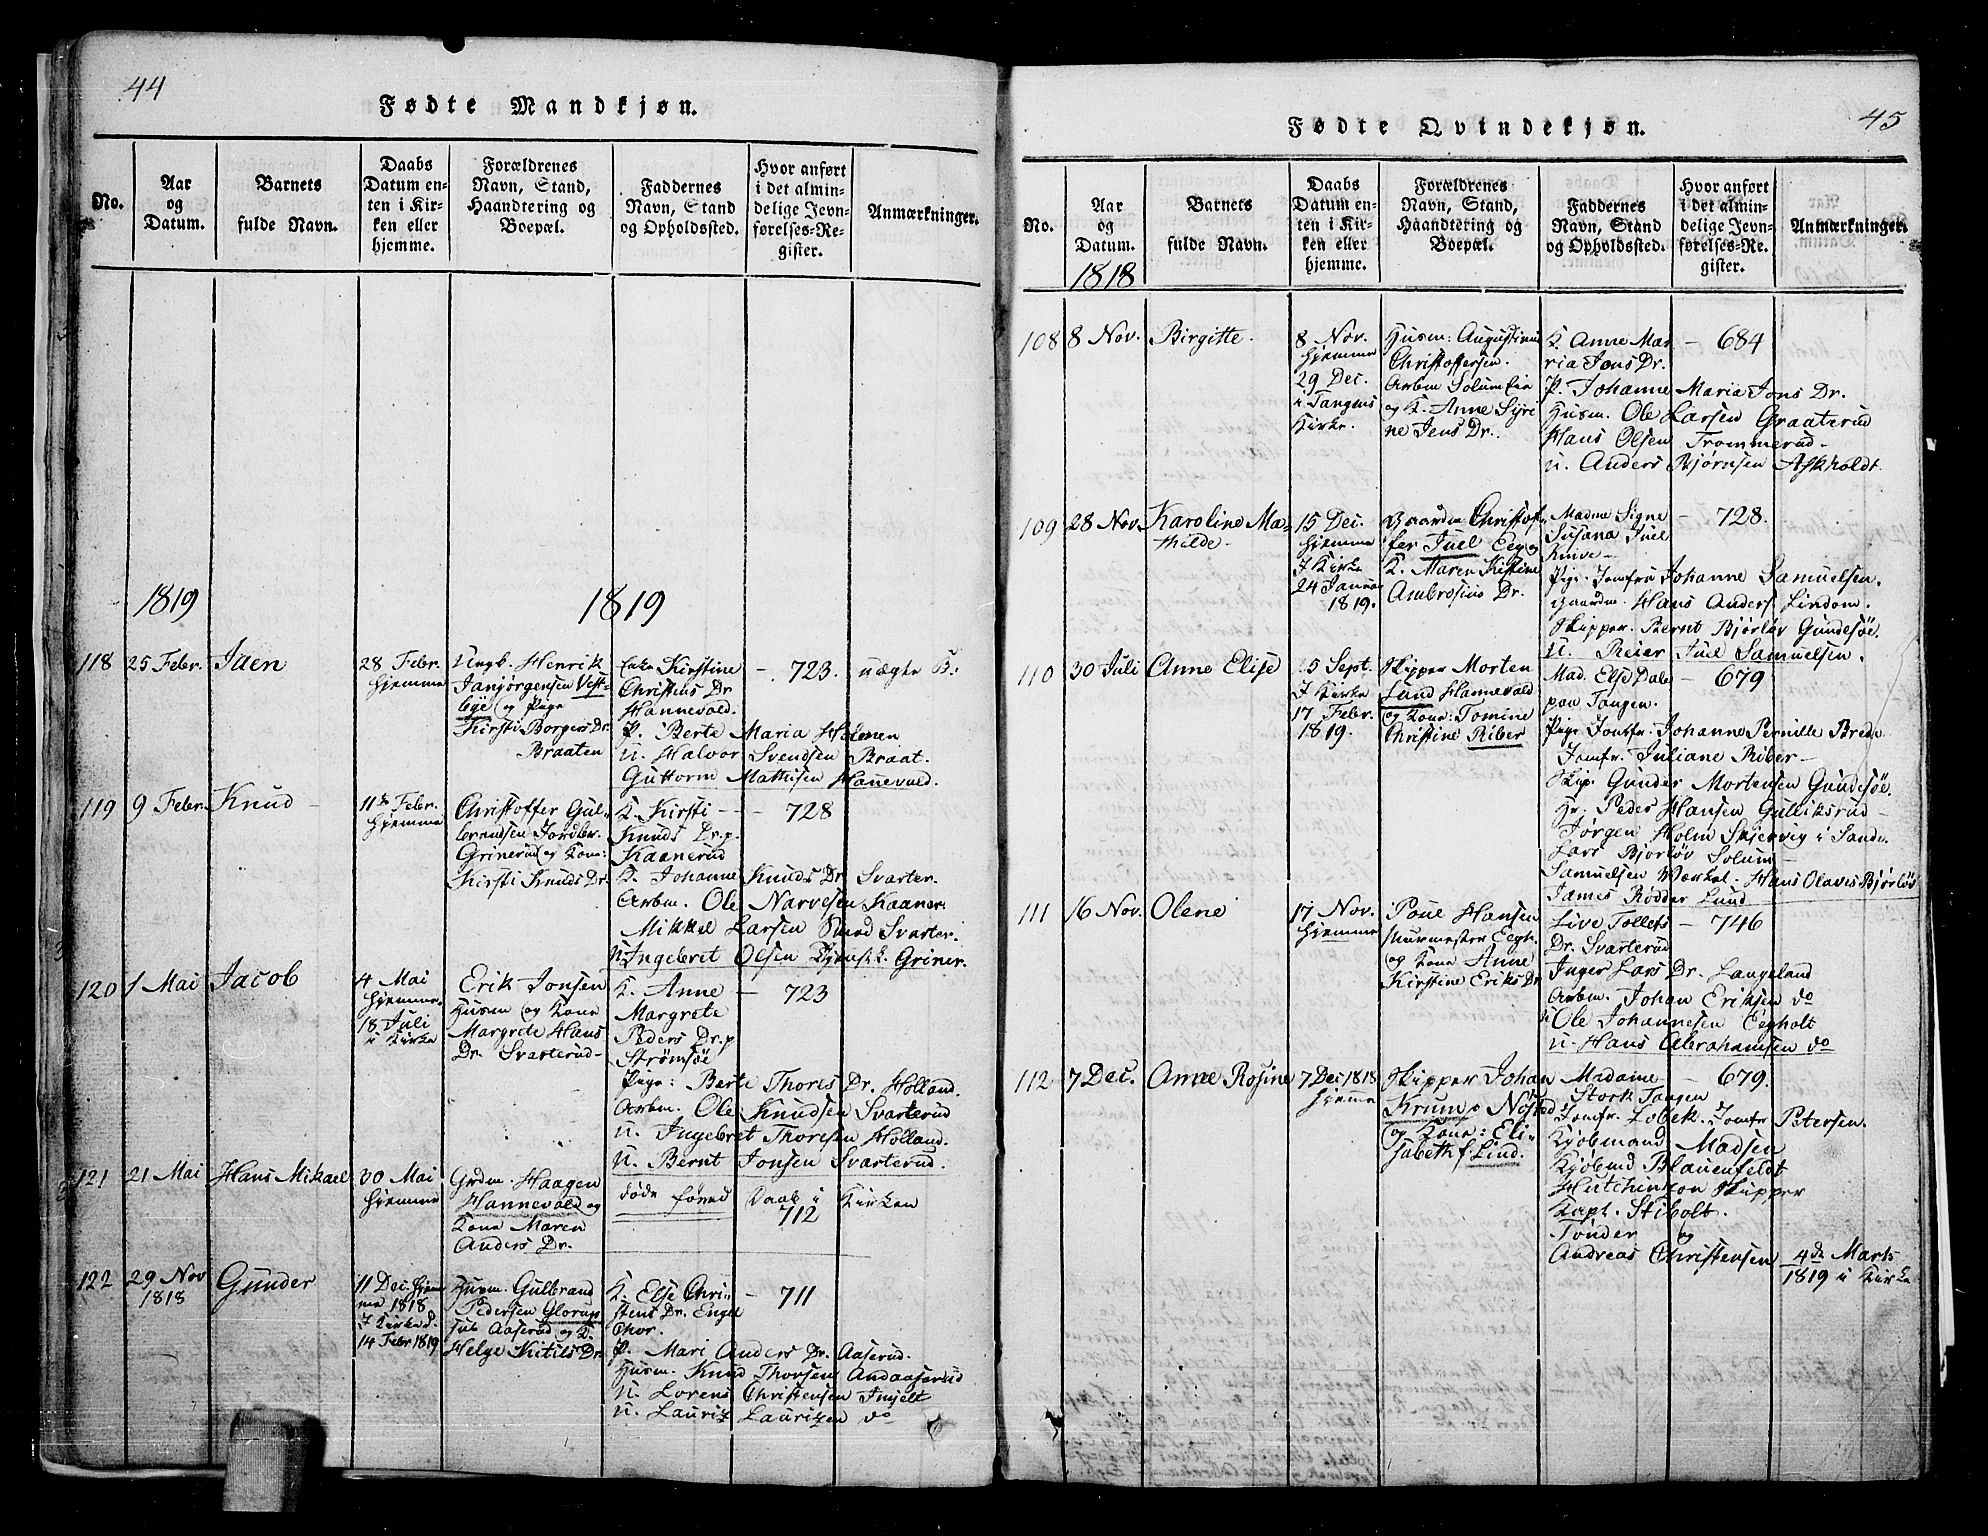 44
Fødte Mandkjøn.
No.
Aar og Datum.
Barnets fulde Navn.
Daabs Datum enten i Kirken eller hjemme.
Forældrenes Navn, Stand, Haandtering og Boepæl.
Faddernes Navn, Stand og Opholdssted.
Hvor anført i det almindelige Jevnførelses-Register.
Anmærkninger.
1819
1819
118 25 Febr. Jaen
28 Febr.
hjemme
Ungk. Henrik
Janjørgensen Vest-
bye og Pige
Kirsti Borgers Dr.
Braaten
Enke Kirstine
Christens Dr
Hannevold.
P. Berte Maria Holmen
U. Halvor Svendsen Braat.
Guttorm Mathisen Hanevold.
723. uægte B:
119 9 Febr. Knud
11te Febr.
hjemme
Christoffer Gul-
brandsen Jordbr.
Grinerud og Kone:
Kirsti Knuds Dr.
K. Kirsti
Knuds Dr.
Kaanerud
K. Johanne Knuds Dr Svarter.
Arbm. Ole Narvesen Kaaner.
Mikkel Larsen Svarter.
U. Ingebret Olsen Griner.
728
120 1 Mai Jacob
4 Mai
hjemme
18 Juli
i Kirke
Erik Jonsen
Husm og Kone
Margrete Hans
Dr. Svarterud
K. Anne
Margrete
Peders Dr. p
Strømsøe
Pige: Berte Thores Dr. Holland.
Arbm. Ole Knudsen Svarterud
U. Ingebret Thoresen Holland.
U. Bernt Jonsen Svarterud.
723
121 21 Mai Hans Mikael
30 Mai
hjemme
Grdm. Haagen
Hannevold og
Kone Maren
Anders Dr.
døde førend Daab i Kirken
712
122 29 Nov
1818
Gunder
11 Dec. hjem
me 1818
I Kirke d.
14 Febr 1819
Husm. Gulbrand
Pedersen
Aaserud og K.
Helge Kitils Dr.
K. Else Chri-
stens Dr. Enge
P. Mari Anders Dr. Aaserud.
Husm. Knud Thorsen Andaaserud
U. Lorens Christensen
U. Lauriz Laurizen do
711
45
Fødte Qvindekjøn.
No.
Aar og Datum.
Barnets fulde Navn.
Daabs Datum enten i Kirken eller hjemme.
Forældrenes Navn, Stand, Haandtering og Boepæl.
Faddernes Navn, Stand og Opholdssted.
Hvor anført i det almindelige Jevnførelses-Register.
Anmærkninger.
1818
108 8 Nov. Birgitte.
8 Nov.
hjemme
29 Dec.
i Tangens
Kirke.
Husm: Augustinus
Christoffersen.
Arbm Solum Eie
og K. Anne Syri
ne Jens Dr.
K. Anne Ma
ria Jons Dr.
P. Johanne Maria Jons Dr.
Husm. Ole Larsen Graaterud
Hans Olsen Trommerud
U. Anders Bjørnsen Askholdt.
684
109 28 Nov. Karoline Ma-
thilde
15 Dec.
hjemme
I Kirke
24 Januar
1819.
Gaardm Christof-
fer Juel Eeg og
K. Maren Kistine
Ambrosius Dr.
Madme Signe
Susana Juel
Knive
Pige. Jomfru Johanne Samuelsen.
Gaardm. Hans Anders. Lindom.
Skipper. Bernt Bjørløv Gundesøe.
U. Reier Juel Samuelsen.
728.
110 30 Juli Anne Elise
5 Sept.
I Kirke
17 Febr.
1819.
Skipper Morten
Lund Hannevold
og Kone: Tomine
Christine Riber
Mad. Else Dale
paa Tangen.
Pige Jomfr. Johanne Pernille Brede
Jomfr. Juliane Riber
Skip. Gunder Mortensen Gundesøe.
Hr. Peder Hansen Gulliksrud
Jørgen Holm Skjervig i Sande.
Lars Bjørløv Solum
Samuelsen Værket. Hans Olaves Bjørløv
James Rødder Lund
679
111 16 Nov. Olene
17 Nov.
hjemme
Poul Hansen
Murmester Eegh.
og Kone Anne
Kirstine Eriks Dr
Live Tollefs
Dr. Svarterud
Inger Lars Dr. Langeland
Arbm. Johan Eriksen do
Ole Johannesen Eegholt
U. Hans Abrahamsen do
746
112 7 Dec. Anne Rosine
7 Dec 1818
hjemme
Skipper Johan
Krum Nøsted
og Kone: Eli-
sabeth f. Lind.
Madame
Stork Tangen
Jomfr. Lobek. Jomfr Petersen.
Kjøbmand Madsen
Kjøbmd Blauenfeldt
Hutchinson Skipper
Kapt. Stibolt.
Tønder og
Andreas Christensen
679.
4de Marts
1819 i Kirke